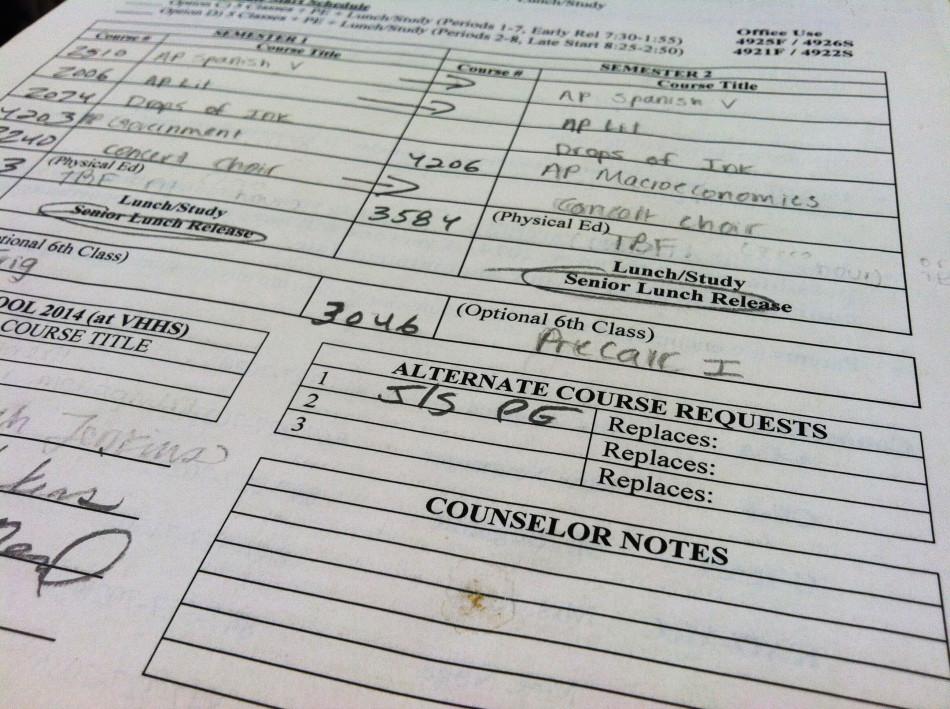 Lunch/Study
Option C) 5 Classes + PE + Lunch/Study (Periods 1-7, Early Rel 7:30-1:55)
Option D) 5 Classes + PE + Lunch/Study (Periods 2-8, Late Start 8:25-2:50)
Office Use
4925F / 4926S
4921F / 4922S
SEMESTER 1
SEMESTER 2
Course # Course Title Course # Course Title
2510 AP Spanish V AP Spanish V
2006 AP Lit AP Lit
2074 Drops of Ink Drops of Ink
4203 AP Government 4206 AP Macroeconomics
3240 Concert Choir Concert Choir
(Physical Ed) 3584 (Physical Ed)
TBF TBF
Lunch/Study Lunch/Study
Senior Lunch Release Senior Lunch Release
6th Class) 3046 (Optional 6th Class)
Precalc I
2014 (at VHHS)
COURSE TITLE
ALTERNATE COURSE REQUESTS
1 J/S PE Replaces:
2 Replaces:
3 Replaces:
COUNSELOR NOTES